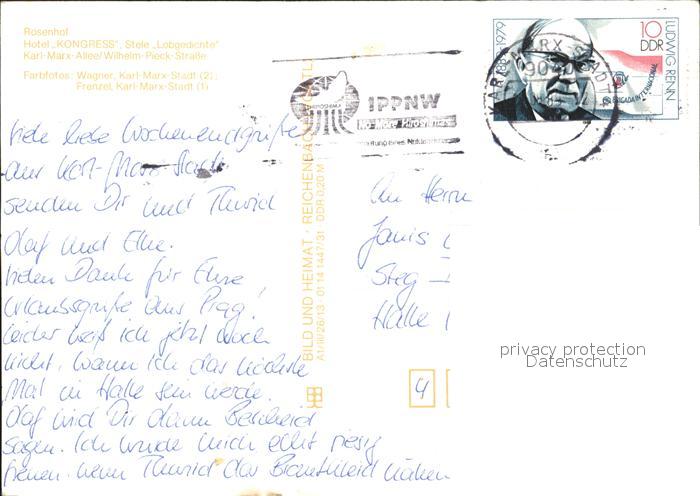 Rosenhof
Hotel „KONGRESS", Stele „Lobgedichte"
Karl-Marx-Allee/Wilhelm-Pieck-Straße
Farbfotos: Wagner, Karl-Marx-Stadt (2);
Frenzel, Karl-Marx-Stadt (1)
Viele liebe Wochenendgrüße
aus Karl-Marx-Stadt
senden Dir und
Olaf und Elke.
Vielen Dank für Eure
Urlaubsgrüße aus Prag!
Leider weiß ich jetzt noch
nicht, wann ich das nächste
Mal in Halle sein werde.
Olaf wird Dir dann Bescheid
sagen. Ich würde mich echt riesig
freuen wenn das Brautkleid nähen
BILD UND HEIMAT · REICHENBACH
A1/III/26/13 01 14 1447/31 DDR 0,20 M
HIROSHIMA
IPPNW
No More Hiroshimas
10
DDR
LUDWIG RENN
1889-1979
BRIGADA INTERNACIONAL
KARL-MARX-STADT
An Herrn
Janis
Steg
Halle
4
privacy protection
Datenschutz